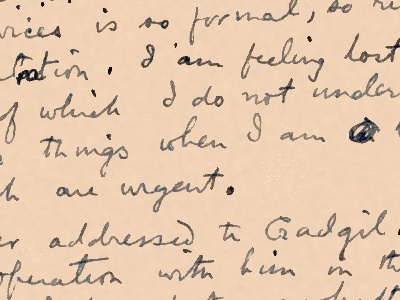 is so formal, so
I am feeling lost
of which I do not under
things when I am
are urgent.
addressed to Gadgil.
operation with him in th